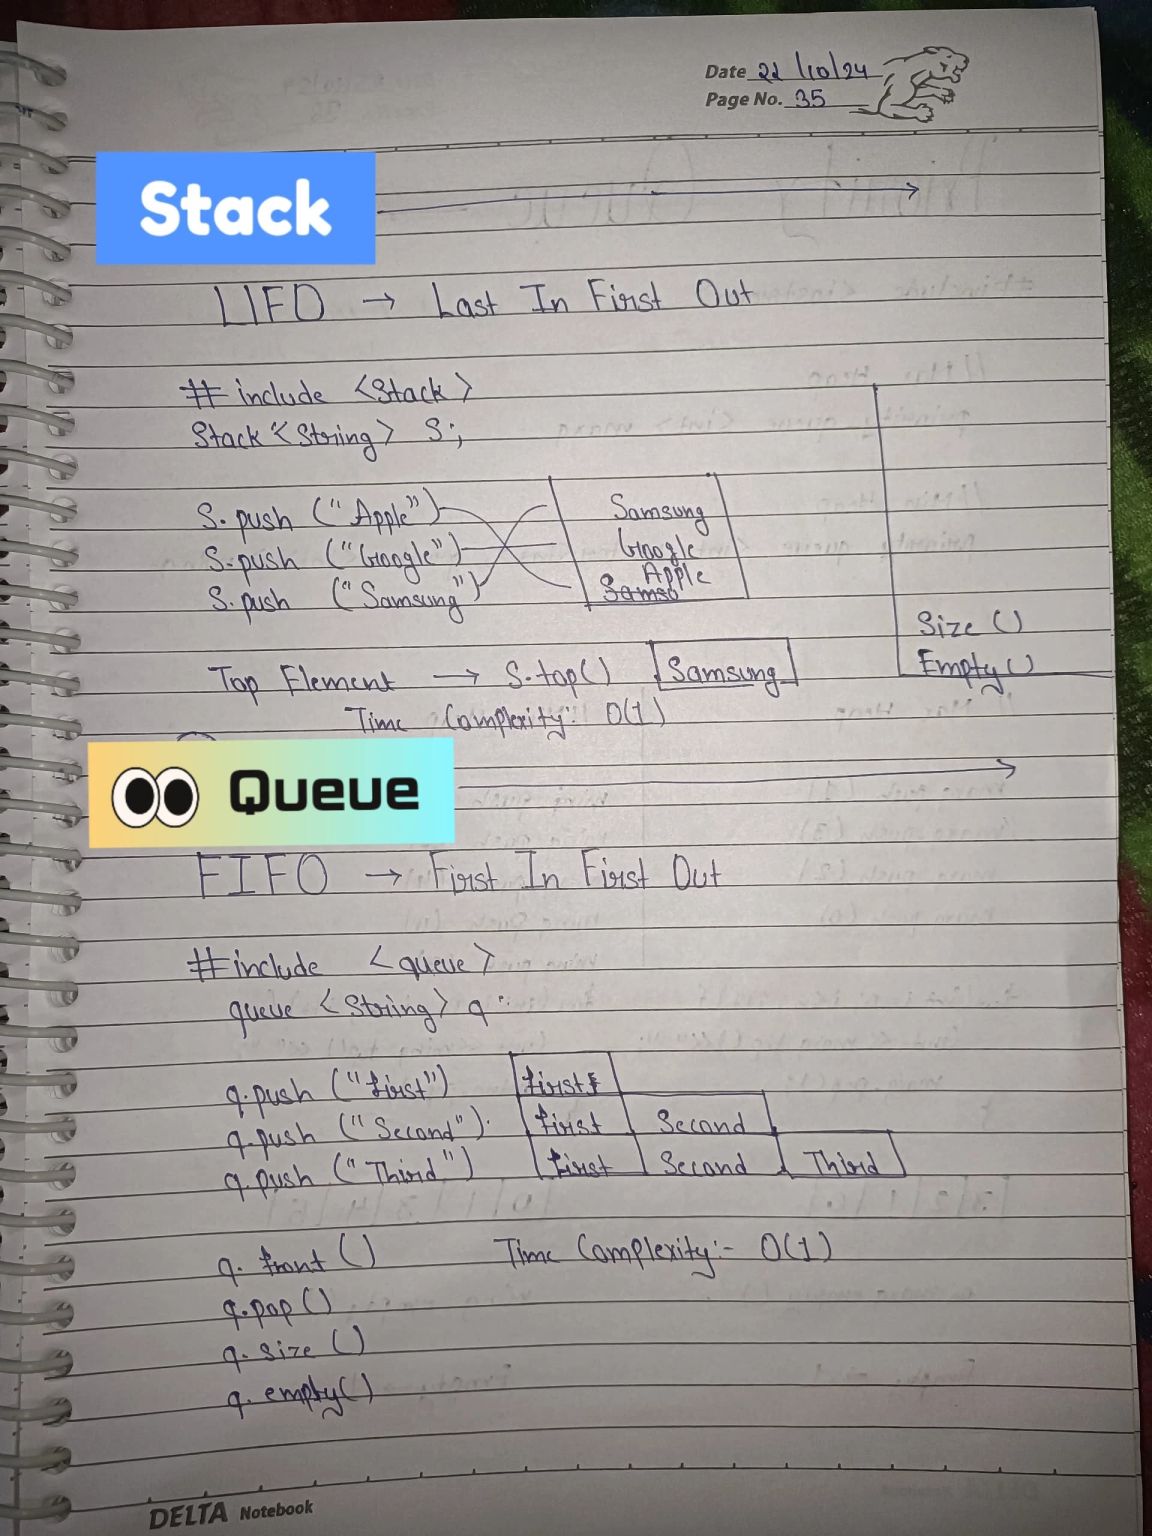 Date 22/10/24
Page No. 35
Stack
LIFO → Last In First Out
# include <Stack>
Stack <String> S;
S.push ("Apple")
S.push ("Google")
S.push ("Samsung")
Samsung
Google
Apple
Samso
Size ()
Empty ()
Top Element → S.top() Samsung
Time Complexity:- O(1)
Queue
FIFO → First In First Out
#include <queue>
queue <String> q;
q.push ("first") first
q.push ("Second"). first Second
q.push ("Third") first Second Third
q. front () Time Complexity:- O(1)
q.pop ()
q. size ()
q. empty()
DELTA Notebook